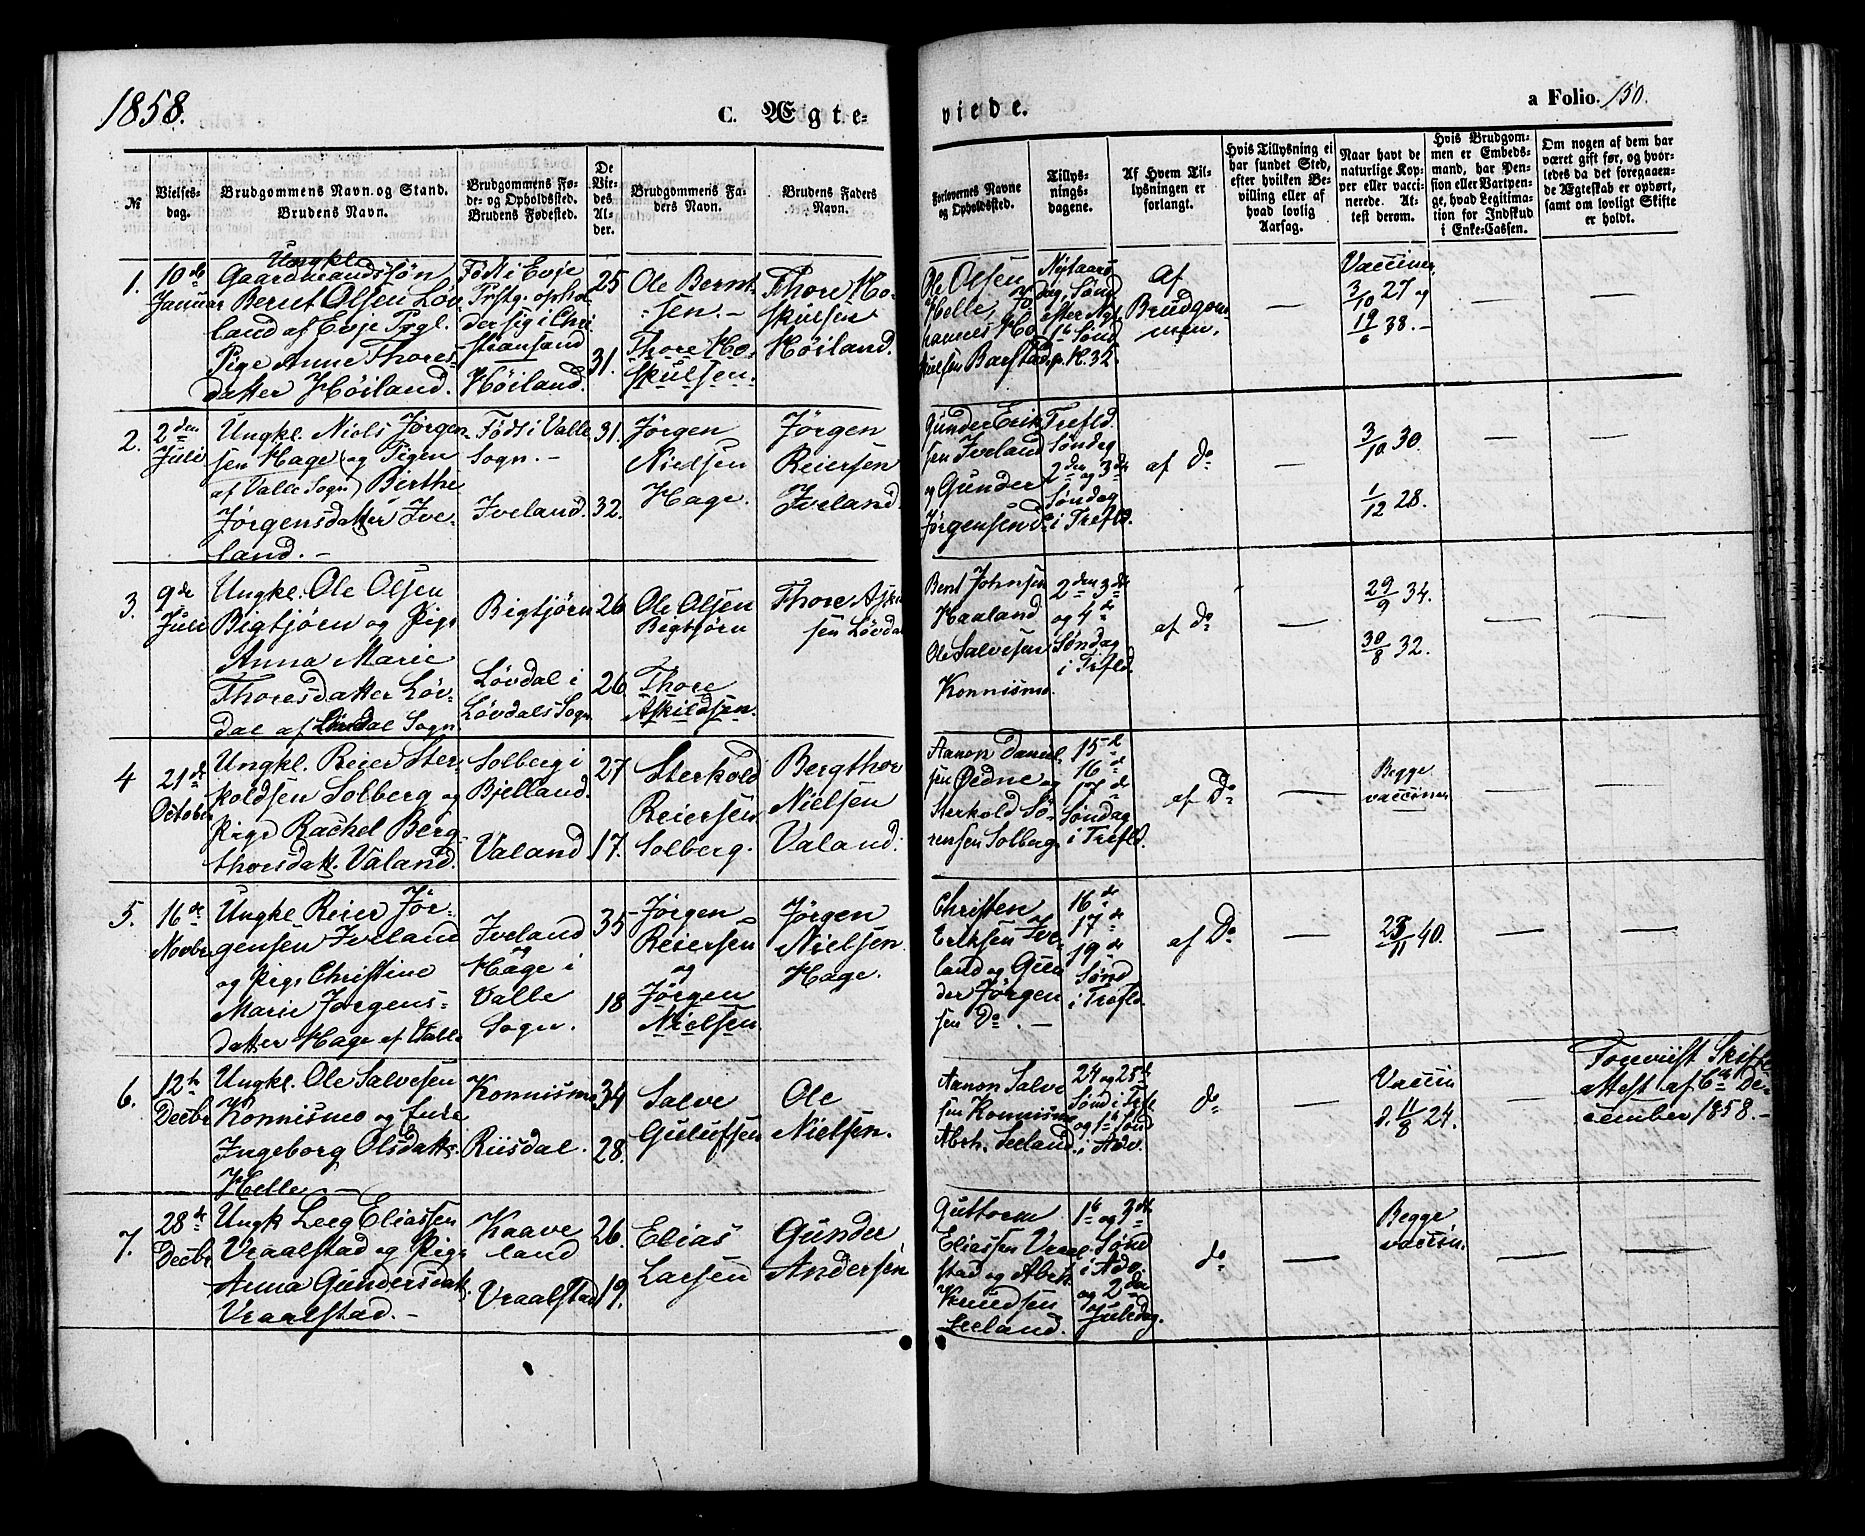 1858.
C. Ægte-
viede.
a Folio. 150.
№
Vielses-
dag.
Brudgommens Navn og Stand.
Brudens Navn.
Brudgommens Fø-
de- og Opholdssted.
Brudens Fødested.
De
Vie-
des
Al-
der.
Brudgommens Fa-
ders Navn.
Brudens Faders
Navn.
Forlovernes Navne
og Opholdssted.
Tillys-
nings-
dagene.
Af Hvem Til-
lysningen er
forlangt.
Hvis Tillysning ei
har fundet Sted,
efter hvilken Be-
villing eller af
hvad lovlig
Aarsag.
Naar havt de
naturlige Kop-
per eller vacci-
nerede. At-
test derom.
Hvis Brudgom-
men er Embeds-
mand, har Pen-
sion eller Vartpen-
ge, hvad Legitima-
tion for Indskud
i Enke-Cassen.
Om nogen af dem har
været gift før, og hvor-
ledes da det foregaaen-
de Ægteskab er ophørt,
samt om lovligt Skifte
er holdt.
1.
10de
Januar
Ungkle
Gaardmandssøn
Bernt Olsen Løv
land af Evje Prgl.
Pige Anne Thores-
datter Høiland.
Født i Evje
Prstg. ophol
der sig i Chri
stiansand
Høiland.
25
31.
Ole Bernt-
sen. -
Thore Ho-
skulsen.
Thore Ho-
skulsen
Høiland.
Ole Olsen
Helle,
hannes Ho
skulsen Barstad.
Nytaars
dag, Sønd
efter Nyt.
1ste Sønd
p. H. 32.
Af
Brudgom
men.
—
Vacciner
3/10 27 og
19/6 38. -
—
—
2.
2den
Juli
Ungkl. Niels Jørgen-
sen Hage og Pigen
af Valle Sogn) Berthe
Jørgensdatter Ive-
land. -
Født i Valle
Sogn. -
Iveland.
31.
32.
Jørgen
Nielsen
Hage.
Jørgen
Reiersen
Iveland.
Gunder Erik
sen Iveland
og Gunder
Jørgensen do
Trefld.
Søndag
2den og 3de
Søndag
i Trefld.
af do
—
3/10 30.
1/12 28.
—
—
3.
9de
Juli
Ungkl. Ole Olsen
Bigtjørn og Pige
Anna Marie
Thoresdatter Løv-
dal af Løvdal Sogn.
Bigtjørn
Løvdal i
Løvdals Sogn.
26
26
Ole Olsen
Bigtjørn
Thore
Askildsen.
Thore Aski
sen Løvdal
Bent Johnsen
Haaland
Ole Salvesen
Konnismo.
2den 3de
og 4de
Søndag
i Trefld.
af do
—
29/9 34.
30/8 32.
—
—
4
21de
October
Ungkl. Reier Ster-
koldsen Solberg og
Pige Rachel Berg
thorsdatt. Valand.
Solberg i
Bjelland.
Valand
27
17.
Sterkold
Reiersen
Solberg.
Bergthor
Nielsen
Valand.
Aanon Daniel
sen Øedne og
Sterkold Sø-
rensen Solberg
15de
16de
17de
Søndag
i Trefld.
af Do
—
Begge
vacciner
—
—
5.
16de
Novbr
Ungkl Reier Jør-
gensen Iveland
og Pige Christine
Marie Jørgens-
datter Hage af Valle
Iveland
og
Hage i
Valle
Sogn.
35
18
Jørgen
Reiersen
og
Jørgen
Nielsen
Jørgen
Nielsen
Hage.
Christen
Eriksen Ive-
land og Gun
der Jørgen
sen Do. -
16de
17de
19de
Sønd
i Trefld
af Do
—
23/11 40.
—
—
6.
12te
Decbr
Ungkl. Ole Salvesen
Konnismo og Enke
Ingeborg Olsdatt.
Helle -
Konnismo
Riisdal.
34
28.
Salve
Gulufsen
Ole
Nielsen.
Aanon Salve
sen Konnismo
Abrh. Seeland.
24 og 25de
Sønd i Trefl
og 1ste Sønd
i Adv.
do
—
Vaccin
d. 11/8 24.
—
Foreviist Skifte
attest af 6te De-
cember 1858. -
7.
28de
Decbr
Ungk Leeg Eliassen
Vraalstad og Pige
Anna Gundersdatt.
Vraalstad. -
Kaave
land
Vraalstad
26.
19.
Elias
Larsen
Gunder
Andersen
Guttorm
Eliassen Vraal
stad og Abrh.
Knudsen
Seeland.
1ste og 3de
Sønd
i Adv.
og 2den
Juledag.
do
—
Begge
vaccin.
—
—